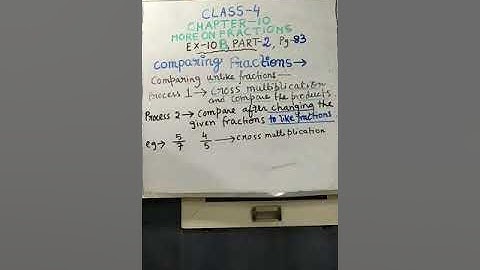 CLASS-4
CHAPTER-10
MORE ON FRACTIONS
EX-10B, PART-2, Pg-83
Comparing Fractions→
Comparing unlike fractions—
Process 1→ Cross multiplication
and compare the products.
Process 2→ Compare after changing the
given fractions to like fractions.
eg→ 5/7 4/5 → cross multiplication